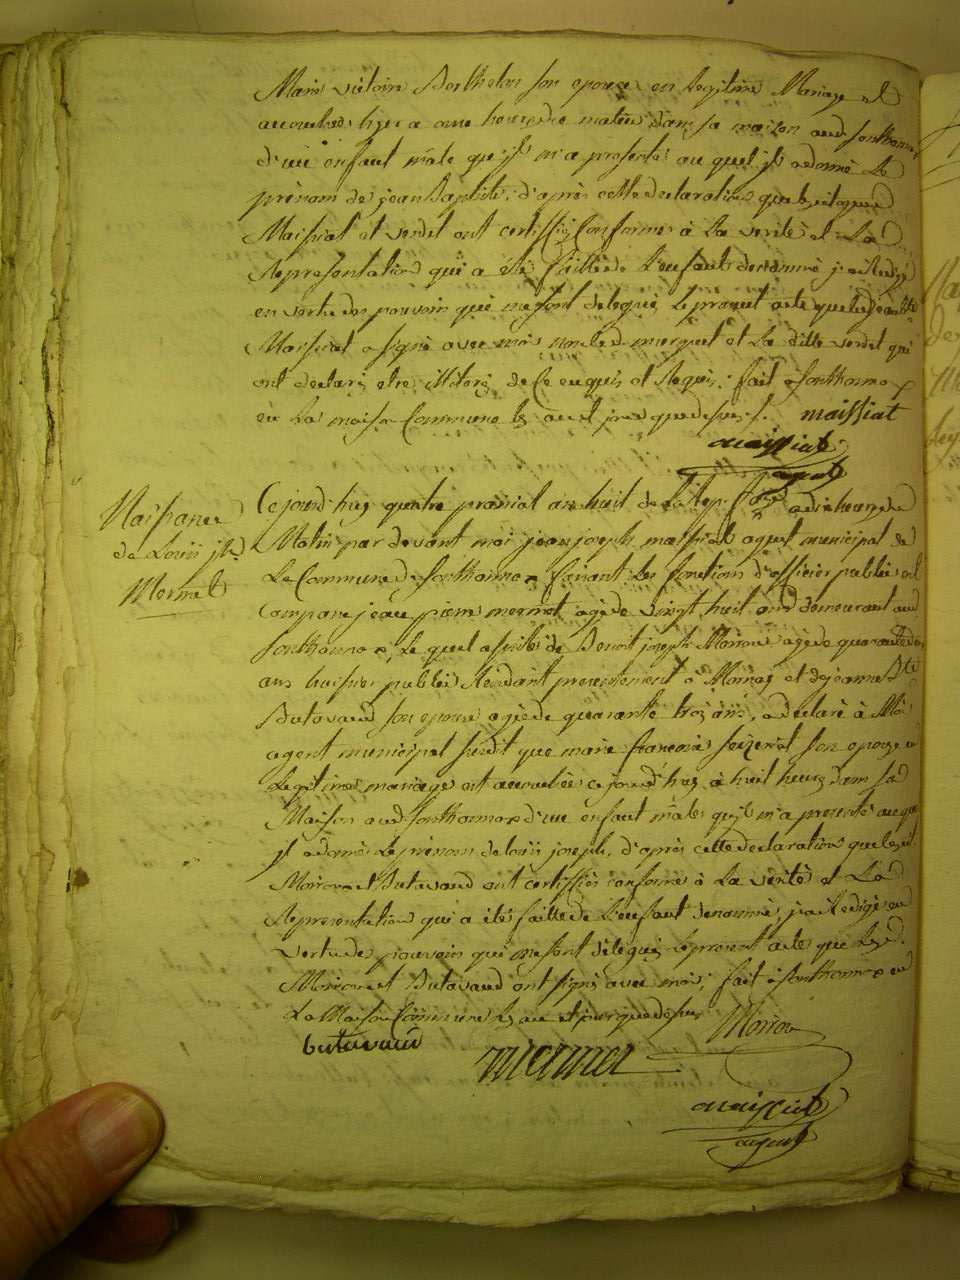 Marie victoire Berthelon son epouse en Legitime Mariage est
accouchée hyer a onze heures du matin dans sa maison aud. Sonthonnax
d'un enfant mâle qu'jl m'a presenté au quel jl a donné Le
prenom de jean Baptiste, d'après cette declaration que les citoyens
Maissiat et verdet ont certiffiée Conforme à La verité et La
Representation qui a été faitte de L'enfant denommé j'ai Redigé
en vertu des pouvoirs qui me sont delegués Le présent acte que led. jean Bte
Maissiat a signé avec moi non led. murquet et La ditte verdet qui
ont declaré etre illiterés de Ce enquis et Requis. fait à Sonthonnax
en La maison Commune les an et jour que dessus. maissiat
maissiat
agent
Naissance
de Louis jh
Mermet
Ce jourd'huy quatre prairial an huit de La Rep. fse a dix heures de
Matin par devant moi jean joseph maissiat agent municipal de
La Commune de Sonthonnax faisant Les fonctions d'officier public est
Comparu jean pierre mermet agé de vingt huit ans demeurant aud.
Sonthonnax, Le quel assisté de Benoit joseph Moiroux agé de quarante
ans huissier public Residant presentement à Mornay et de jeanne Bte
Butavaud son epouse agée de quarante trois ans, a declaré à Moi
agent municipal susdit que marie françoise seizeriat son epouse en
Legitime mariage est accouchée ce jourd'huy à huit heures dans sa
Maison aud. Sonthonnax d'un enfant mâle qu'jl m'a presenté au quel
jl a donné Le prenom de Louis joseph, d'après cette declaration que les cit.
Moiroux et Butavaud ont certiffiés conforme à La vérité et La
Representation qui a été faitte de L'enfant denommé, j'ai Redigé en
vertu des pouvoirs qui me sont délégués Le present acte que Lesd.
Moiroux et Butavaud ont signé avec moi, fait à Sonthonnax en
La Maison Commune Les an et jour que dessus Moiroux
butavaud
mermet
maissiat
agent